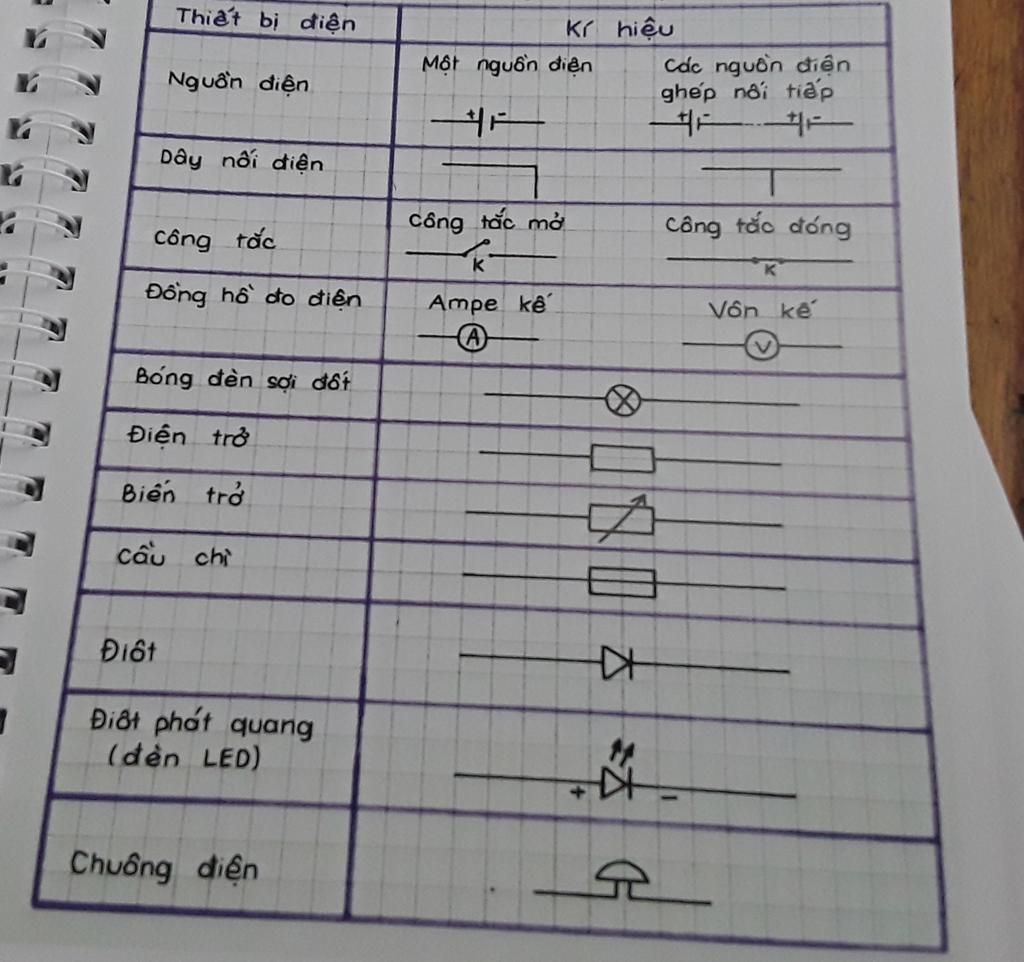 Thiết bị điện
Kí hiệu
Nguồn điện
Một nguồn điện
Các nguồn điện
ghép nối tiếp
+ -
+ - + -
Dây nối điện
Công tắc
Công tắc mở
K
Công tắc đóng
K
Đồng hồ đo điện
Ampe kế
A
Vôn kế
V
Bóng đèn sợi đốt
Điện trở
Biến trở
Cầu chì
Điôt
Điôt phát quang
(đèn LED)
+ -
Chuông điện